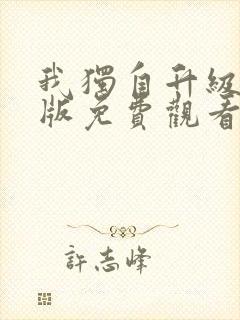 我獨自升級
版免費觀看
許志峰